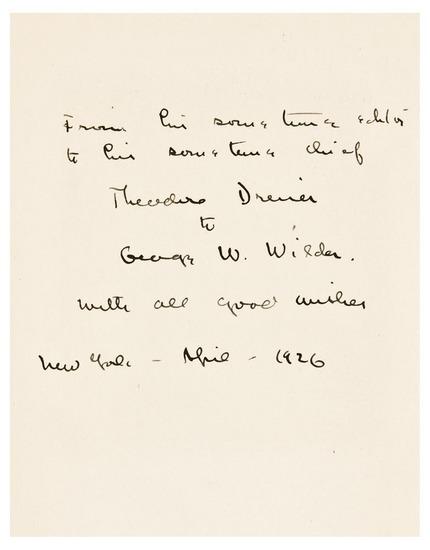 From his some time editor
to his some time chief
Theodore Dreiser
to
George W. Wilder.
with all good wishes
New York - April - 1926